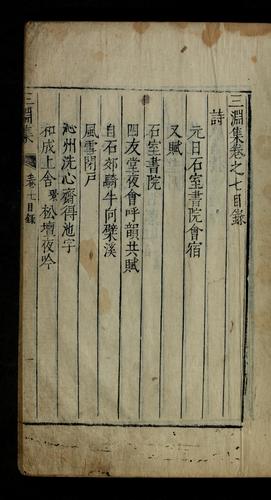 三淵集卷之七目錄
詩
元日石室書院會宿
又賦
石室書院
四友堂夜會呼韻共賦
自石郊騎牛向檗溪
風雪閉戶
沁州洗心齋得池字
和成上舍松壇夜吟
三淵集 卷七目錄